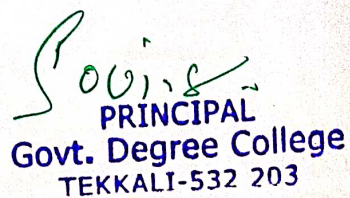 PRINCIPAL
Govt. Degree College
TEKKALI-532 203